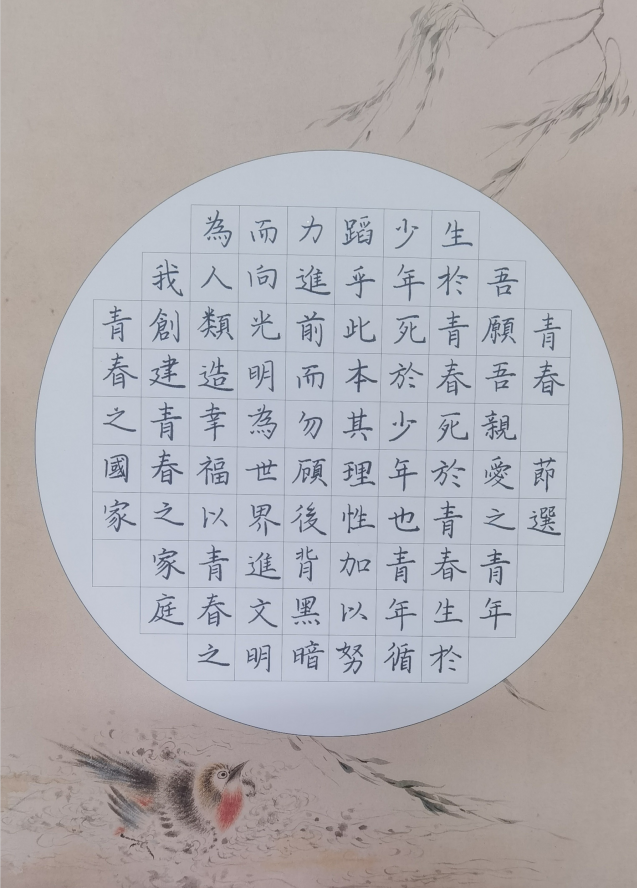 青春 節選
吾願吾親愛之青年
生於青春死於青春生於
少年死於少年也青年循
蹈乎此本其理性加以努
力進前而勿顧後背黑暗
而向光明為世界進文明
為人類造幸福以青春之
我創建青春之家庭
青春之國家